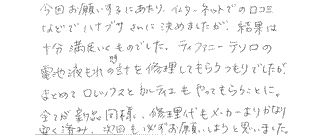 今回お願いするにあたり、インターネットでの口コミ
などでハナブサさんに決めましたが、結果は
十分満足いくものでした。ティファニーテソロの
電池液もれの時計を修理してもらうつもりでしたが、
まとめてロレックスとカルティエもやってもらうことに。
全てが新品同様に、修理代もメーカーよりかなり
安く済み、次回も必ずお願いしようと思いました